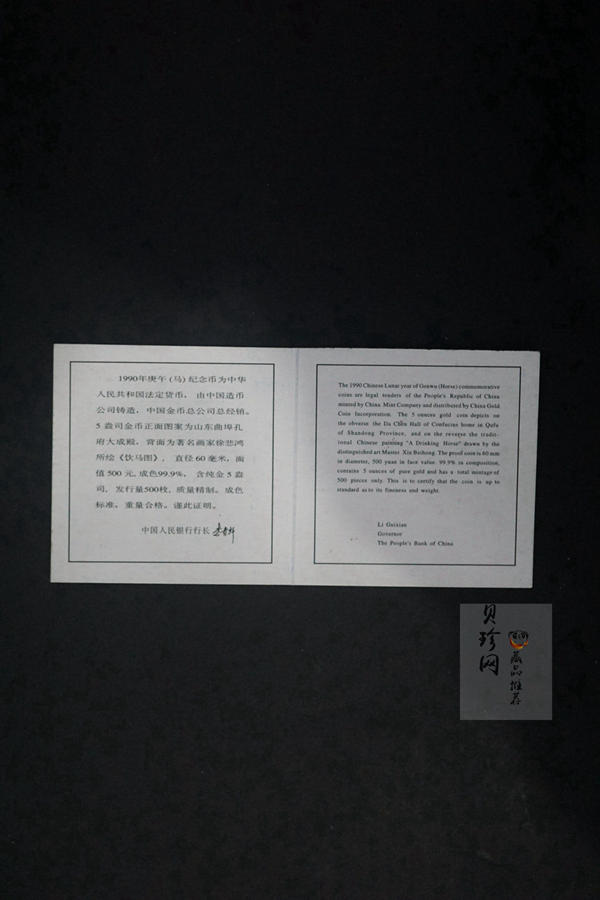 1990年庚午(马)纪念币为中华
人民共和国法定货币，由中国造币
公司铸造，中国金币总公司总经销。
5 盎司金币正面图案为山东曲埠孔
府大成殿，背面为著名画家徐悲鸿
所绘《饮马图》，直径60毫米，面
值500元，成色99.9%，含纯金5盎
司，发行量500枚，质量精制。成色
标准，重量合格。谨此证明。
中国人民银行行长
The 1990 Chinese Lunar year of Genwu (Horse) commemorative
coins are legal tenders of the People's Republic of China
minted by China Mint Company and distributed by China Gold
Coin Incorporation. The 5 ounces gold coin depicts on
the obverse the Da Chen Hall of Confucius home in Qufu
of Shandong Province, and on the reverse the tradit-
ional Chinese painting "A Drinking Horse" drawn by the
distinguished art Master Xiu Beihong. The proof coin is 60 mm
in diameter, 500 yuan in face value 99.9% in composition,
contains 5 ounces of pure gold and has a total mintage of
500 pieces only. This is to certify that the coin is up to
standard as to its fineness and weight.
Li Guixian
Governor
The People's Bank of China
贝珍网
藏品推荐